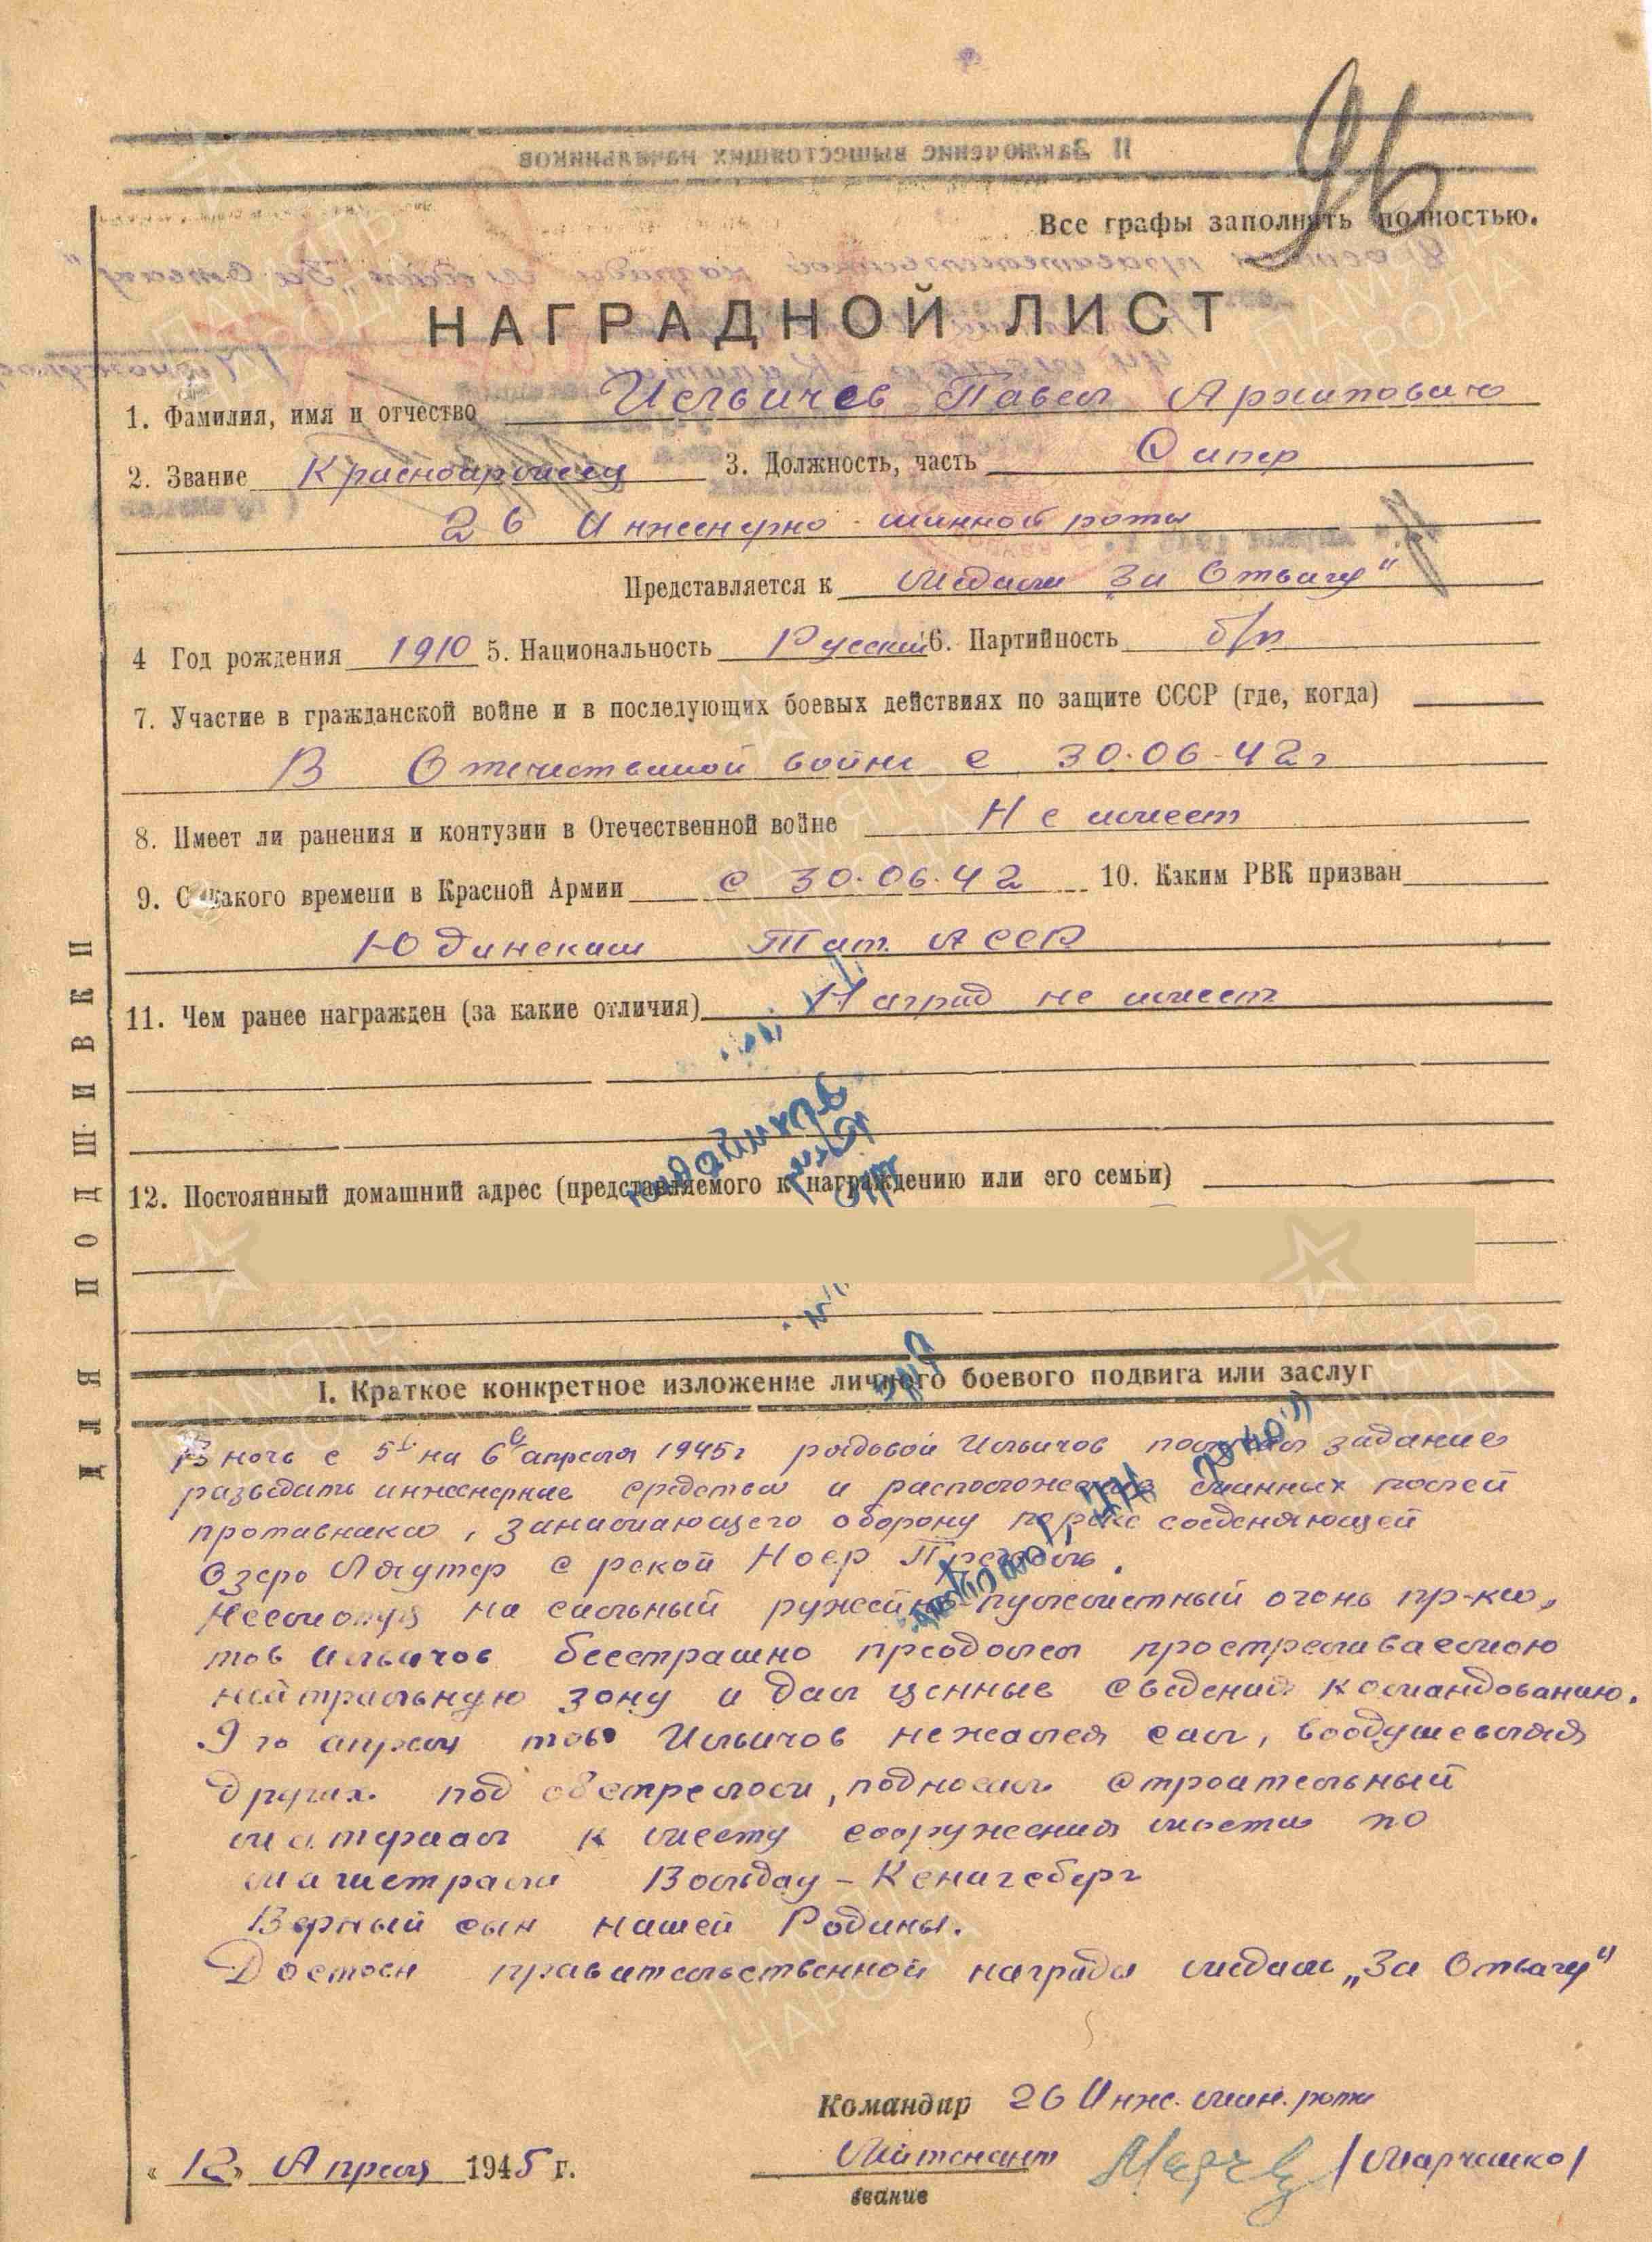 II Заключение вышестоящих начальников
96
Все графы заполнять полностью.
НАГРАДНОЙ ЛИСТ
1. Фамилия, имя и отчество Ильичев Павел Архипович
2. Звание Красноармеец 3. Должность, часть Сапер
26 Инженерно-минной роты
Представляется к медали "За Отвагу"
4 Год рождения 1910 5. Национальность Русский 6. Партийность б/п
7. Участие в гражданской войне и в последующих боевых действиях по защите СССР (где, когда)
В Отечественной войне с 30.06-42г
8. Имеет ли ранения и контузии в Отечественной войне Не имеет
9. С какого времени в Красной Армии с 30.06.42 10. Каким РВК призван
Юдинским Тат. АССР
11. Чем ранее награжден (за какие отличия) Наград не имеет
12. Постоянный домашний адрес (представляемого к награждению или его семьи)
ДЛЯ ПОДШИВКИ
I. Краткое конкретное изложение личного боевого подвига или заслуг
В ночь с 5 на 6 апреля 1945г рядовой Ильичов получил задание
разведать инженерные средства и расположение минных полей
противника, занимающего оборону по реке соединяющей
Озеро Лаутер с рекой Ноер Прегель.
Несмотря на сильный ружейно пулеметный огонь пр-ка,
тов Ильичов бесстрашно преодолел простреливаемою
нейтральную зону и дал ценные сведения командованию.
9 го апреля тов Ильичов нежалея сил, воодушевляя
других под обстрелом, подносил строительный
материал к месту сооружения моста по
магистрали Вальдау-Кенигсберг
Верный сын нашей Родины.
Достоен правительственной награды медали "За Отвагу"
Командир 26 Инж. мин. роты
Лейтенант /Марченко/
звание
«12» Апреля 1945 г.
ПАМЯТЬ НАРОДА